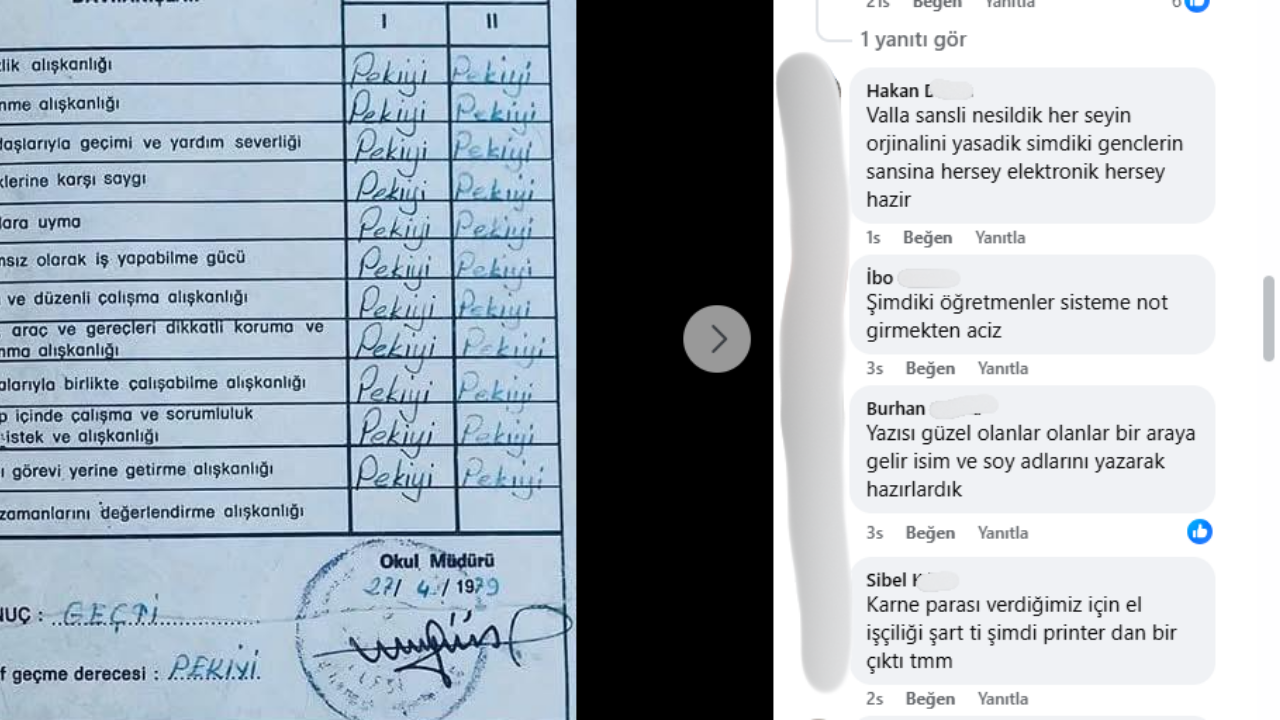 I II
lik alışkanlığı Pekiyi Pekiyi
nme alışkanlığı Pekiyi Pekiyi
daşlarıyla geçimi ve yardım severliği Pekiyi Pekiyi
klerine karşı saygı Pekiyi Pekiyi
lara uyma Pekiyi Pekiyi
nsız olarak iş yapabilme gücü Pekiyi Pekiyi
ve düzenli çalışma alışkanlığı Pekiyi Pekiyi
araç ve gereçleri dikkatli koruma ve
nma alışkanlığı Pekiyi Pekiyi
alarıyla birlikte çalışabilme alışkanlığı Pekiyi Pekiyi
p içinde çalışma ve sorumluluk
istek ve alışkanlığı Pekiyi Pekiyi
ı görevi yerine getirme alışkanlığı Pekiyi Pekiyi
zamanlarını değerlendirme alışkanlığı
Okul Müdürü
27/ 4 / 1979
NUÇ : GEÇTİ
f geçme derecesi : PEKİYİ
21s Beğen Yanıtla 6
1 yanıtı gör
Hakan
Valla sansli nesildik her seyin
orjinalini yasadik simdiki genclerin
sansina hersey elektronik hersey
hazir
1s Beğen Yanıtla
İbo
Şimdiki öğretmenler sisteme not
girmekten aciz
3s Beğen Yanıtla
Burhan
Yazısı güzel olanlar olanlar bir araya
gelir isim ve soy adlarını yazarak
hazırlardık
3s Beğen Yanıtla
Sibel
Karne parası verdiğimiz için el
işçiliği şart ti şimdi printer dan bir
çıktı tmm
2s Beğen Yanıtla